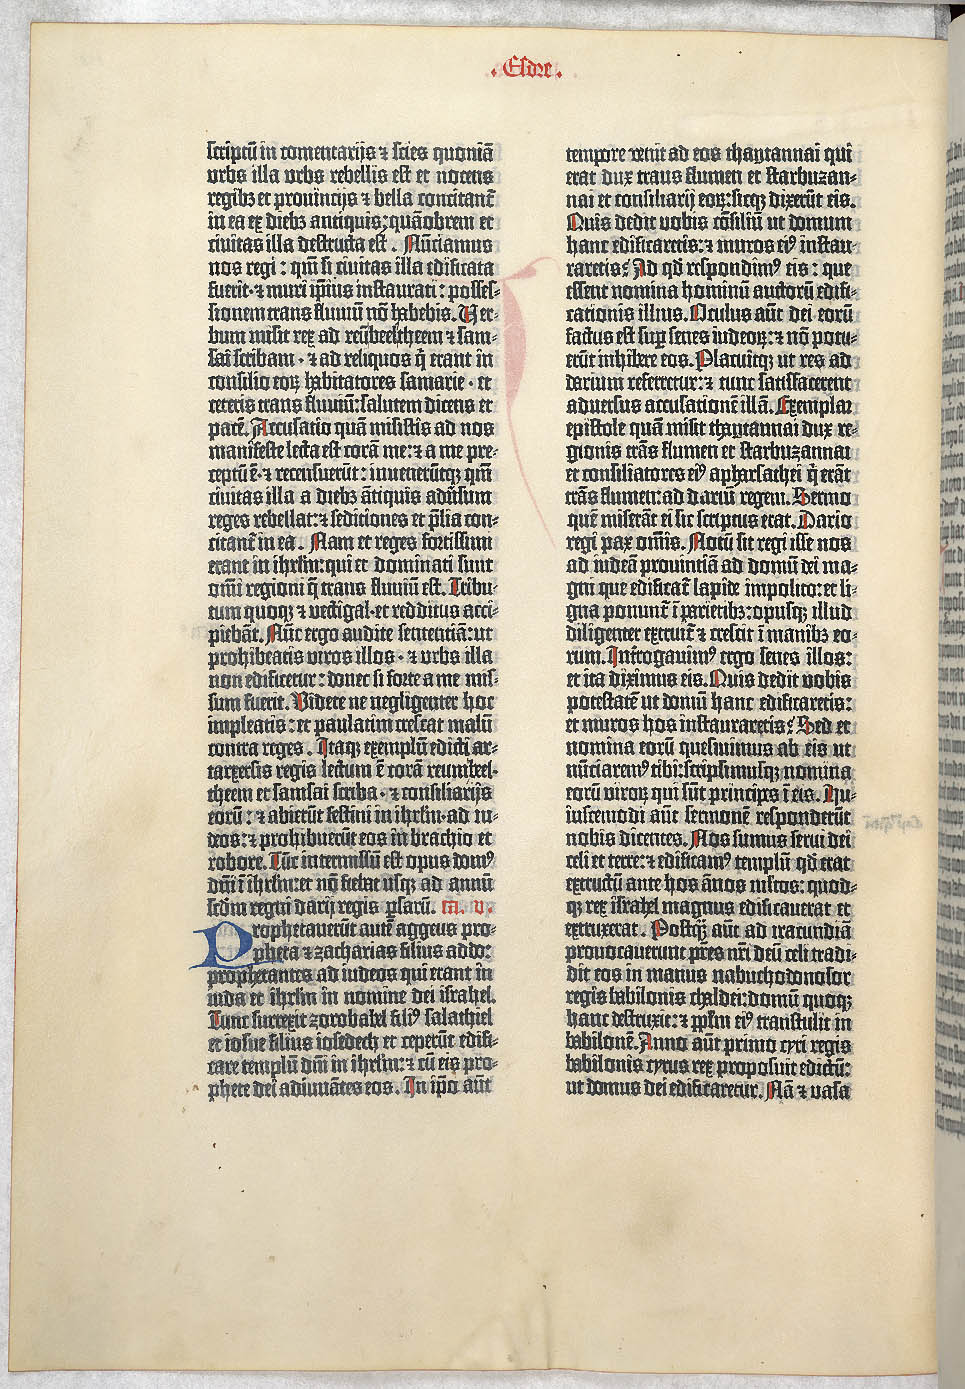 . Esdre .
scriptū in comentarijs ⁊ scies quoniā
urbs illa urbs rebellis est et nocens
regibꝫ et prouincijs ⁊ bella concitanť
in ea ex diebꝫ antiquis: quāobrem et
ciuitas illa destructa est . Nūciamus
nos regi : qm̄ si ciuitas illa edificata
fuerit · ⁊ muri ipīus instaurati : posses-
sionem trans fluuiū nō habebis. Ver-
bum misit rex ad reūbeeltheem ⁊ sam-
sai scribam · ⁊ ad reliquos q̄ erant in
consilio eoꝝ habitatores samarie · et
ceteris trans fluuiū: salutem dicens et
pacē. Accusatio quā misistis ad nos
manifeste lecta est corā me: ⁊ a me pre-
ceptū ē · ⁊ recensuerūt : inuenerūtqꝫ qm̄
ciuitas illa a diebꝫ ātiquis aduſsum
reges rebellat: ⁊ seditiones et p̄lia con-
citanť in ea . Nam et reges fortissimi
erant in ihrlm: qui et dominati sunt
omī regioni q̄ trans fluuiū est. Tribu-
tum quoqꝫ ⁊ uectigal · et redditus acci-
piebāt. Nūc ergo audite sententiā: ut
prohibeatis viros illos · ⁊ urbs illa
non edificetur : donec si forte a me ius-
sum fuerit. Videte ne negligenter hoc
impleatis : et paulatim crescat malū
contra reges . Itaqꝫ exemplū edicti ar-
tarxersis regis lectum ē corā reumbeel-
theem et samsai scriba · ⁊ consiliarijs
eorū : ⁊ abierūt festini in ihrlm · ad iu-
deos : ⁊ prohibuerūt eos in brachio et
robore. Tūc intermissū est opus dom⁹
dn̄i ī ihrlm : et nō fiebat usqꝫ ad annū
scd̄m regni darij regis p̱sarū. ca. v.
Prophetauerūt autē aggeus pro-
pheta ⁊ zacharias filius addo:
prophetantes ad iudeos qui erant in
iuda et ihrlm in nomine dei israhel.
Tunc surrexit zorobabel fili⁹ salathiel
et iosue filius iosedech et ceperūt edifi-
care templū dn̄i in ihrlm: ⁊ cū eis pro-
phete dei adiuuātes eos . In ip̄o aūt
tempore venit ad eos thaytannai qui
erat dux trans flumen et starbuzan-
nai et consiliarij eoꝝ: sicqꝫ dixerūt eis.
Quis dedit uobis cōsiliū ut domum
hanc edificaretis: ⁊ muros ei⁹ instau-
raretis? Ad qd̄ respondim⁹ eis : que
essent nomina hominū auctorū edifi-
cationis illius. Oculus aūt dei eorū
factus est sup̱ senes iudeoꝝ: ⁊ nō potu-
erūt inhibere eos. Placuitqꝫ ut res ad
darium referretur: ⁊ tunc satisfacerent
aduersus accusationē illā. Exemplar
epistole quā misit thaytannai dux re-
gionis trās flumen et starbuzannai
et consiliatores ei⁹ apharsathei q̄ erāt
trās flumen: ad dariū regem. Sermo
quē miserāt ei sic scriptus erat. Dario
regi pax om̄is. Notū sit regi isse nos
ad iudeā prouintiā ad domū dei ma-
gni que edificať lapide impolito: et li-
gna ponunť ī parietibꝫ: opusqꝫ illud
diligenter extruiť ⁊ crescit ī manibꝫ eo-
rum. Int̄rogauim⁹ ergo senes illos:
et ita diximus eis. Quis dedit uobis
potestatē ut domū hanc edificaretis:
et muros hos instauraretis? Sed et
nomina eorū quesiuimus ab eis ut
nūciarem⁹ tibi: scripsimusqꝫ nomina
eorū viroꝝ qui sūt principes ī eis. Hu-
iuscemodi aūt sermonē responderūt
nobis dicentes. Nos sumus serui dei
celi et terre: ⁊ edificam⁹ templū qd̄ erat
extructū ante hos ānos m̄ltos: quod-
qꝫ rex israhel magnus edificauerat et
extruxerat . Postqꝫ̄ aūt ad iracundiā
prouocauerunt p̄res nr̄i deū celi tradi-
dit eos in manus nabuchodonosor
regis babilonis chaldei: domū quoqꝫ
hanc destruxit: ⁊ pp̄lm ei⁹ transtulit in
babilonē. Anno aūt primo cyri regis
babilonis cyrus rex proposuit edictū:
ut domus dei edificaretur. Nā ⁊ vasa